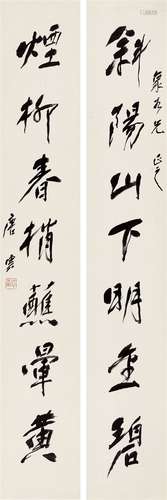 斜陽山下明金碧
泉石兄 正之
煙柳春梢蘸暈黃
唐雲